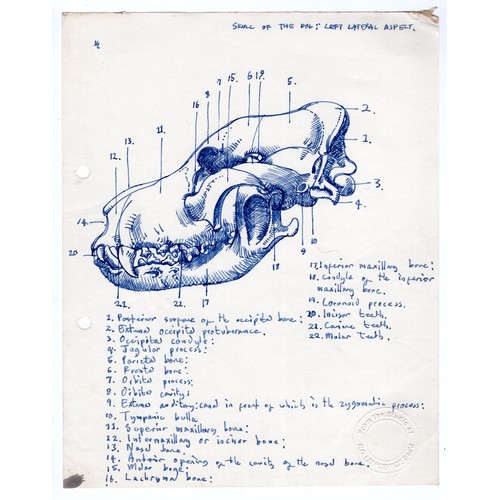 SKULL OF THE DOG: LEFT LATERAL ASPECT.
4
15. 6 19.
5.
7
8
16
2.
11.
13.
12.
1.
3
4.
14
20
9
10
18
21.
21
17
17. Inferior maxillary bone:
18. Condyle of the inferior
maxillary bone.
19. Coronoid process.
20. Incisor teeth.
21. Canine teeth.
22. Molar Teeth.
1. Posterior surface of the occipital bone:
2. External occipital protuberance.
3. Occipital condyle:
4. Jugular process:
5. Parietal bone:
6. Frontal bone:
7. Orbital process:
8. Orbital cavity:
9. External auditory: canal in front of which is the zygomatic process:
10. Tympanic bulla.
11. Superior maxillary bone:
12. Intermaxillary or incisor bone:
13. Nasal bone:
14. Anterior opening of the cavity of the nasal bone.
15. Malar bone:
16. Lachrymal bone:
From the